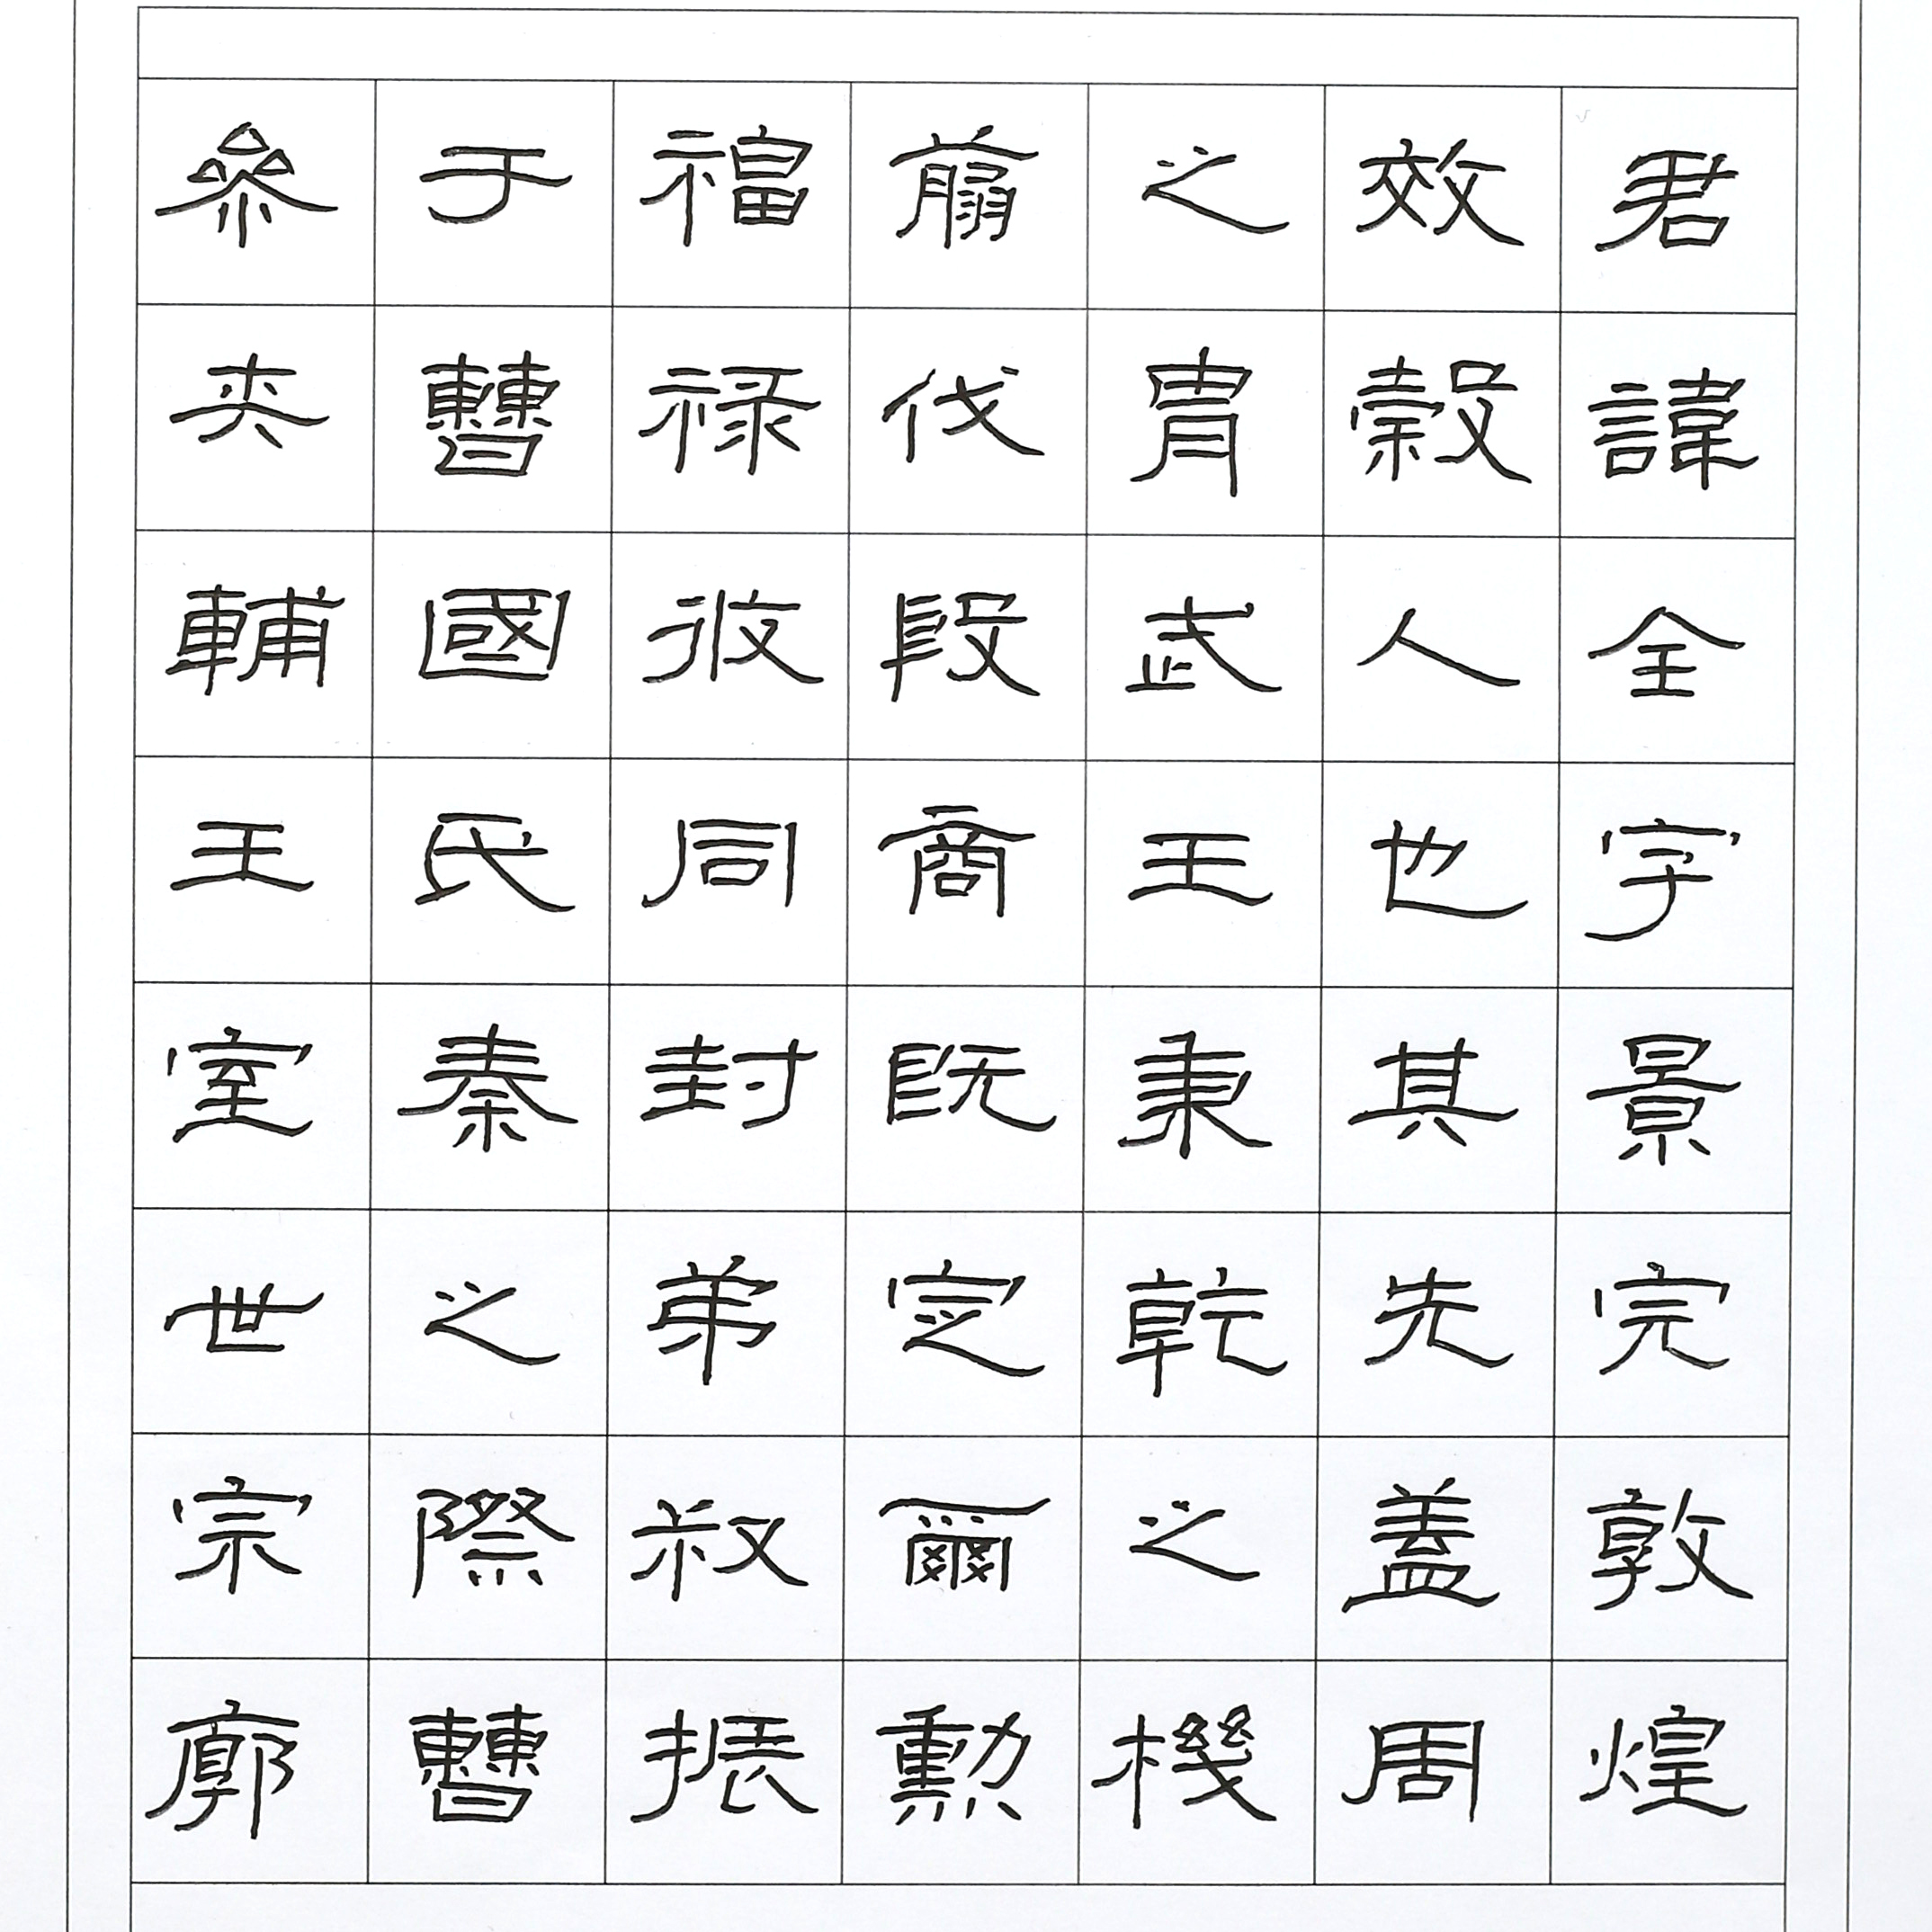 君諱全字景完敦煌
效穀人也其先蓋周
之胄武王秉乾之機
翦伐殷商既定爾勳
福祿攸同封弟叔振
鐸于曹國氏秦之際曹